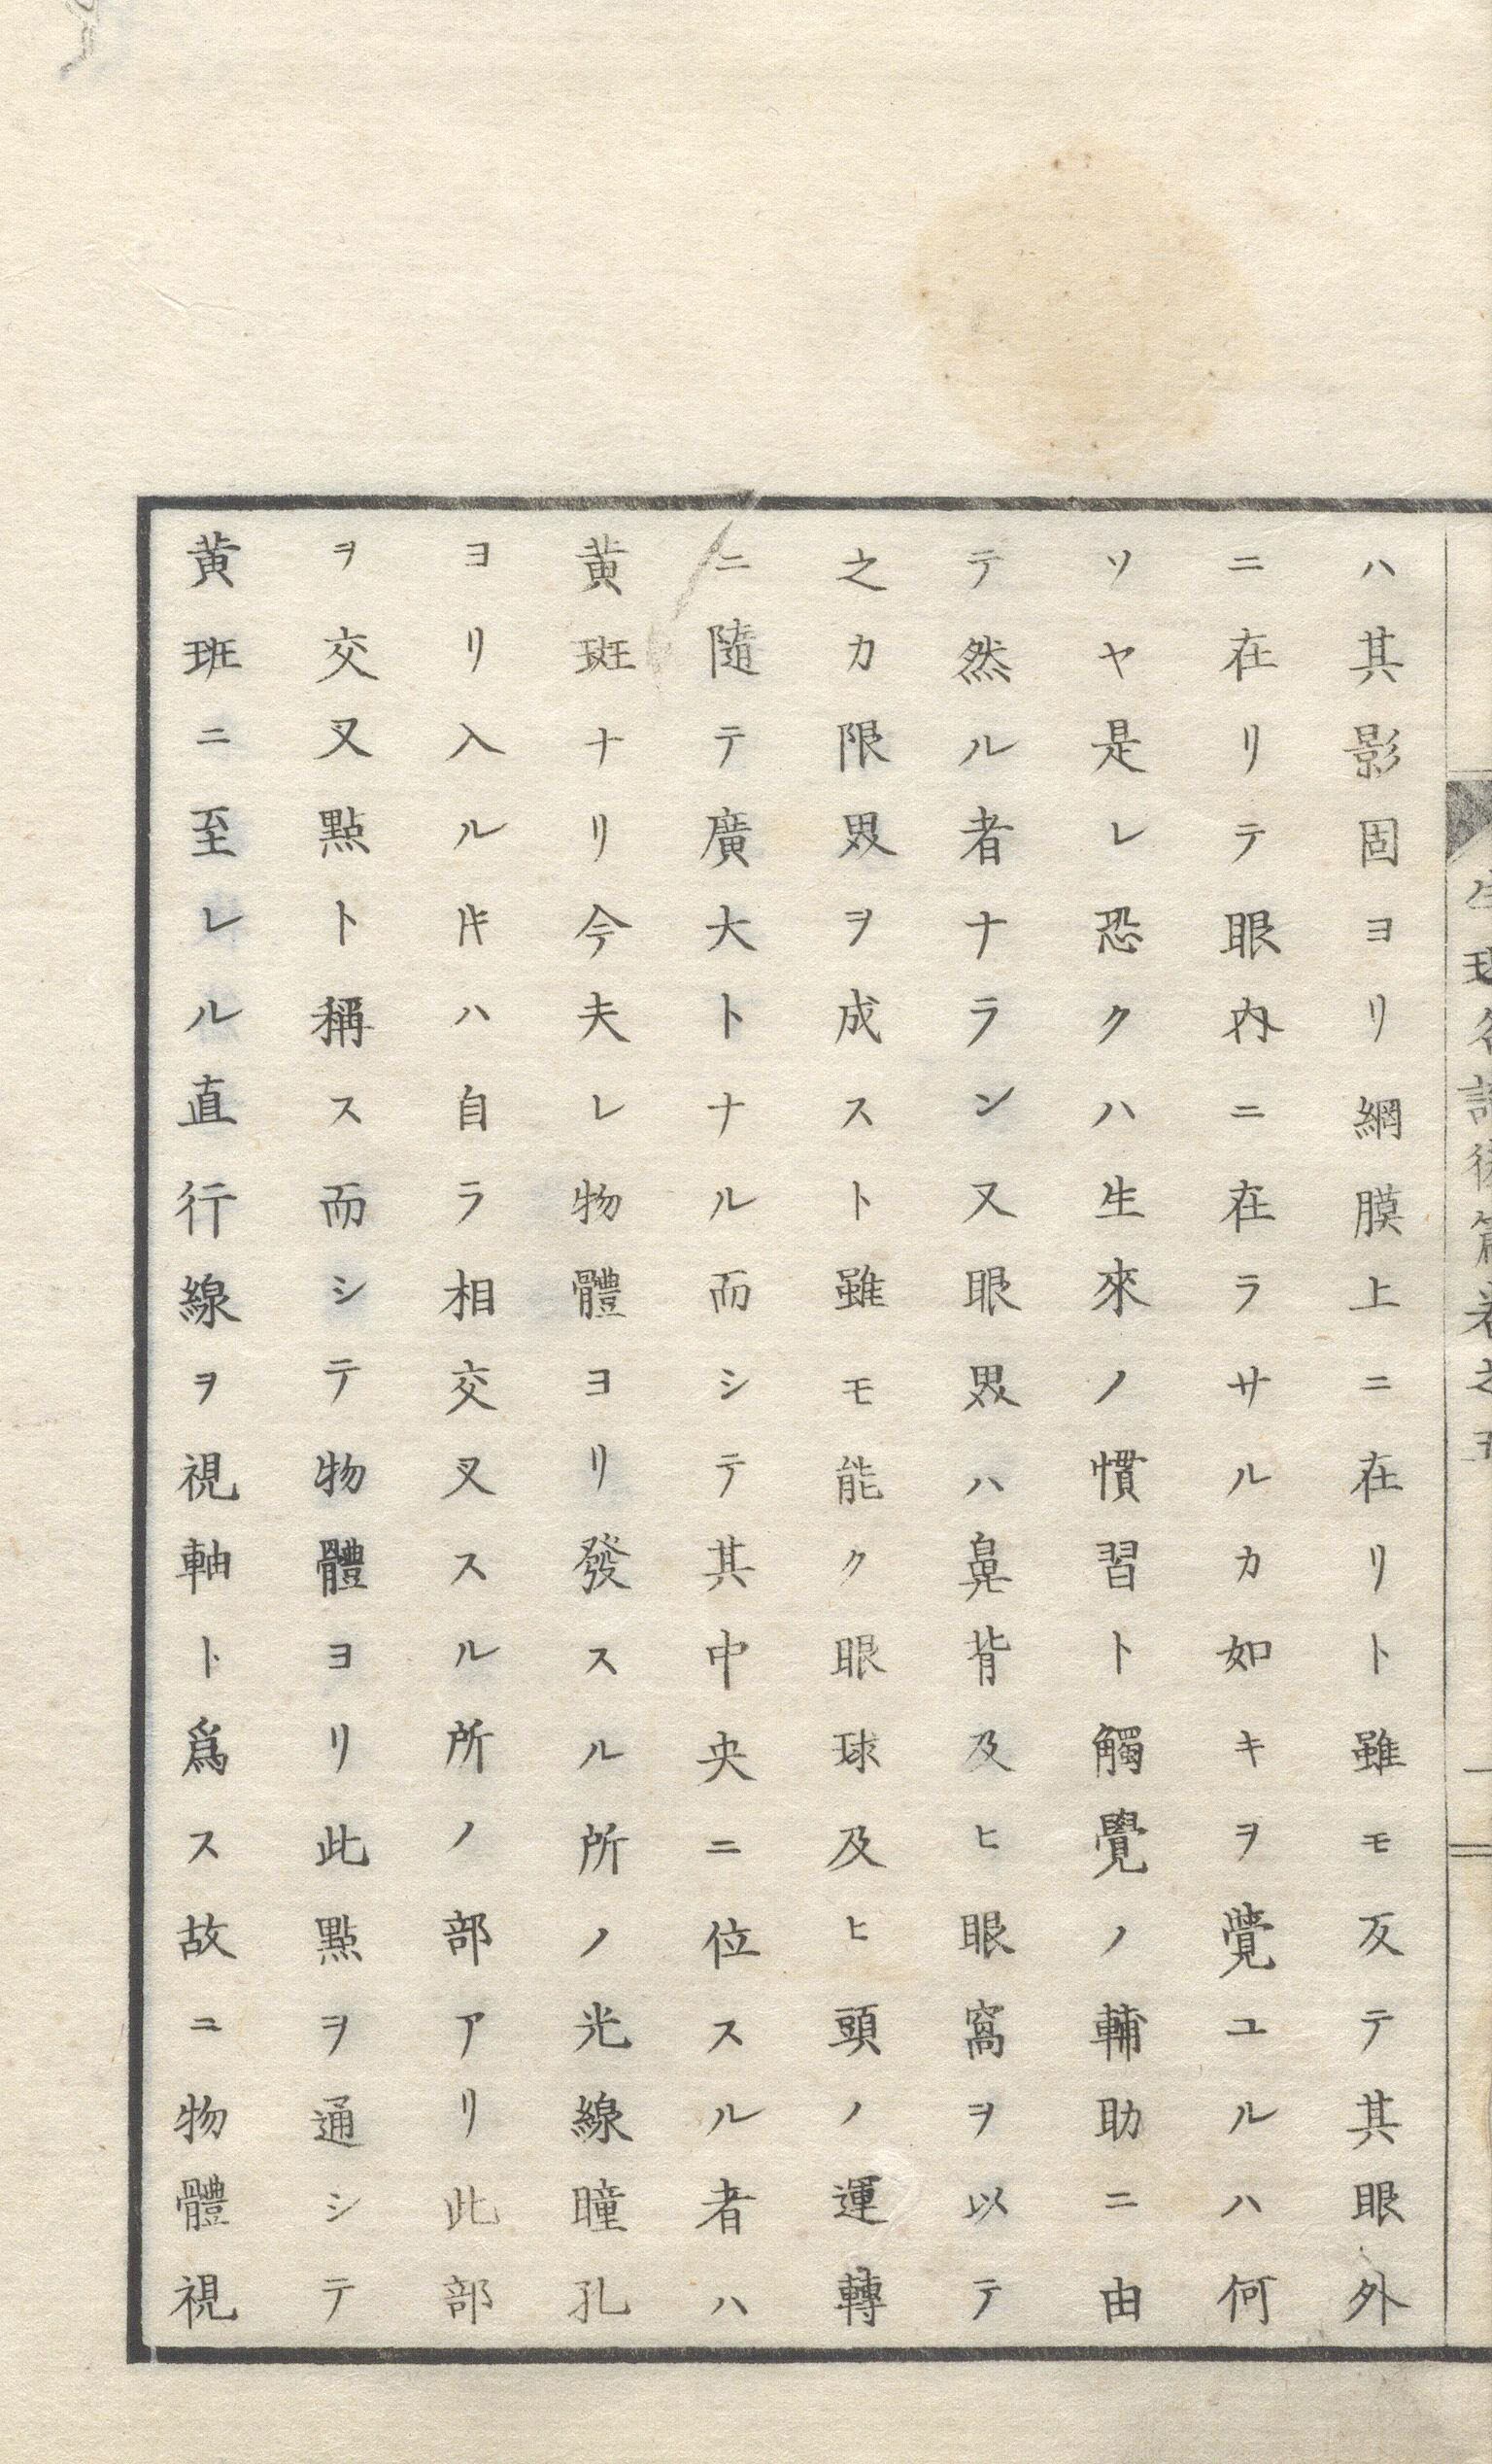 ハ其影固ヨリ網膜上ニ在リト雖モ反テ其眼外
ニ在リテ眼内ニ在ラサルカ如キヲ覺ユルハ何
ソヤ是レ恐クハ生來ノ慣習ト觸覺ノ輔助ニ由
テ然ル者ナラン又眼界ハ鼻背及ヒ眼窩ヲ以テ
之カ限界ヲ成スト雖モ能ク眼球及ヒ頭ノ運轉
ニ隨テ廣大トナル而シテ其中央ニ位スル者ハ
黄斑ナリ今夫レ物體ヨリ發スル所ノ光線瞳孔
ヨリ入ル𪜈ハ自ラ相交叉スル所ノ部アリ此部
ヲ交叉點ト稱ス而シテ物體ヨリ此點ヲ通シテ
黄斑ニ至レル直行線ヲ視軸ト爲ス故ニ物體視